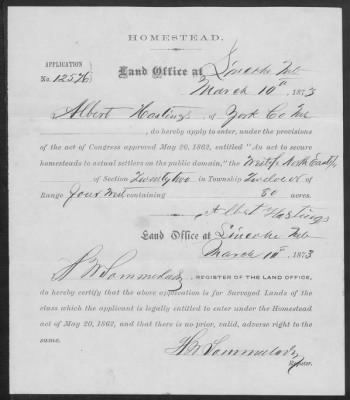 HOMESTEAD.
APPLICATION
No. 12576
Land Office at Lincoln Neb
March 10th 1873
Albert Hastings of York Co Neb
, do hereby apply to enter, under the provisions
of the act of Congress approved May 20, 1862, entitled "An act to secure
homesteads to actual settlers on the public domain," the West ½ North East ¼
of Section Twenty two in Township Twelve N of
Range Four West containing 80 acres.
Albert Hastings
Land Office at Lincoln Neb
March 10th 1873
REGISTER OF THE LAND OFFICE,
do hereby certify that the above application is for Surveyed Lands of the
class which the applicant is legally entitled to enter under the Homestead
act of May 20, 1862, and that there is no prior, valid, adverse right to the
same.
Register.